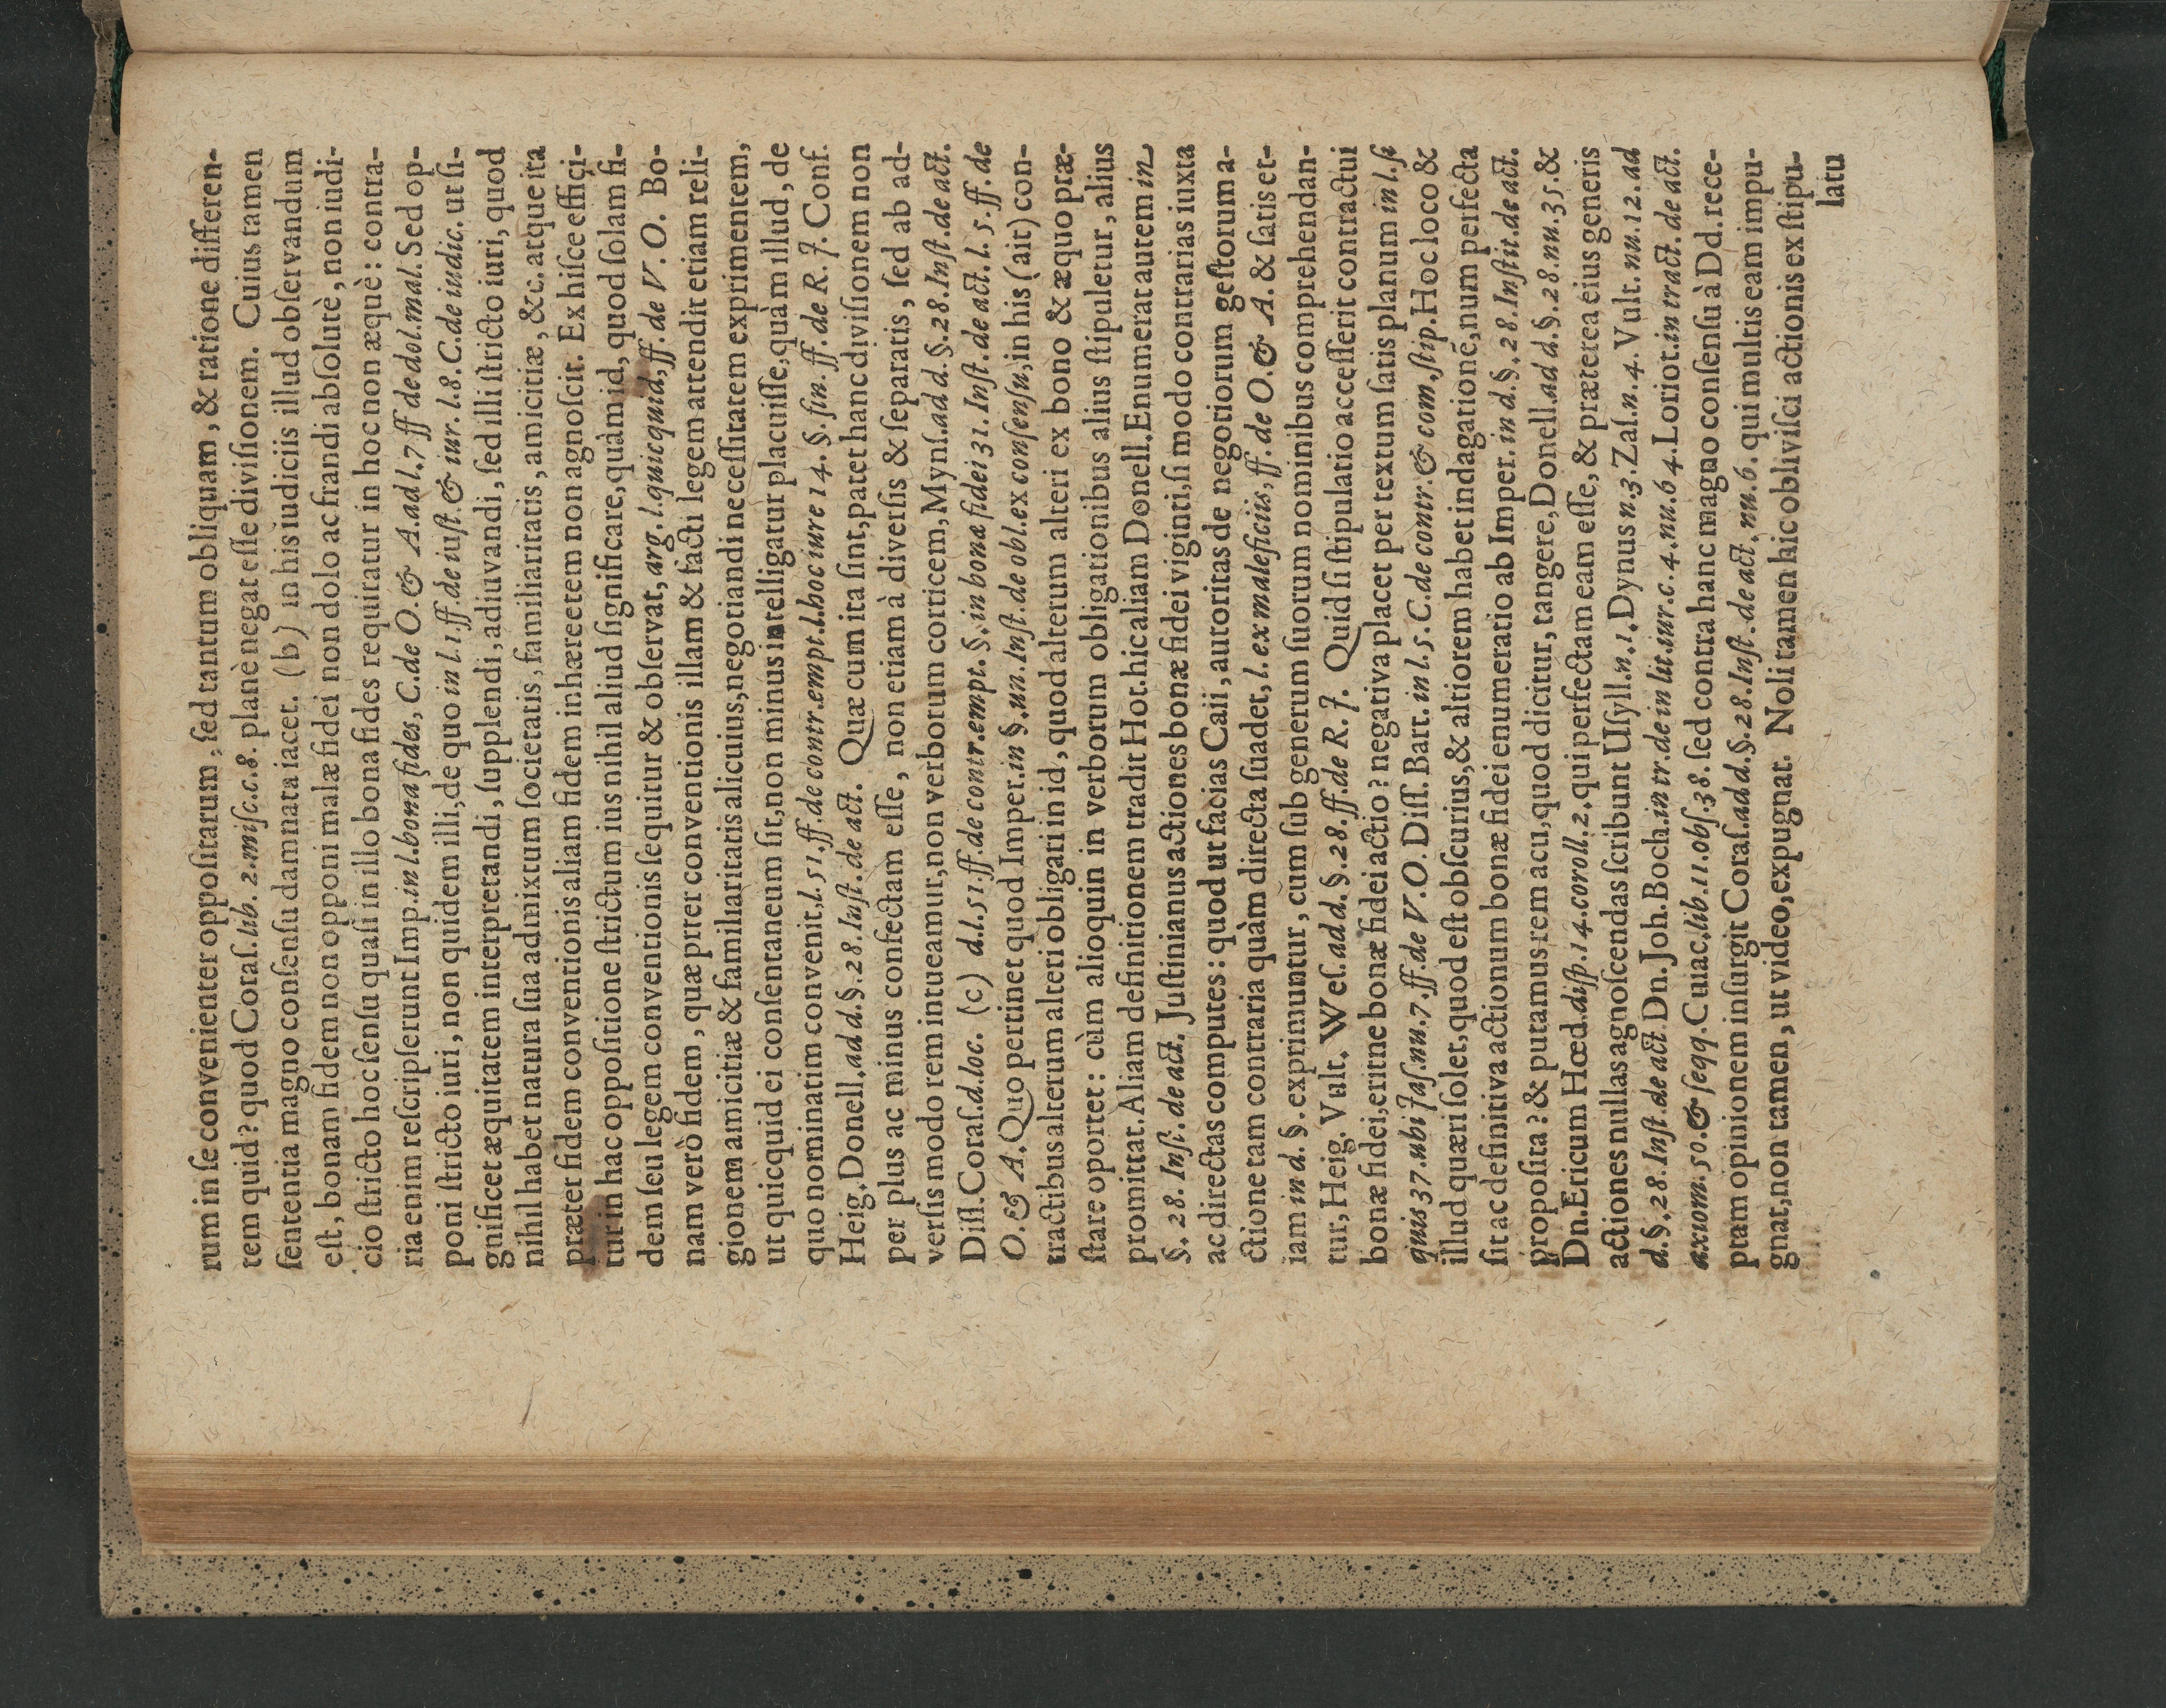 rum in ſe convenienter oppoſitarum, ſed tantum obliquam, & ratione differen-
tem quid? quod Coraſ. lib. 2. miſc. c. 8. planè negat eſſe diviſionem. Cuius tamen
ſententia magno conſenſu damnata iacet. (b) in his iudiciis illud obſervandum
eſt, bonam fidem non opponi malæ fidei non dolo ac frandi abſolutè, non iudi-
cio ſtricto hoc ſenſu quaſi in illo bona fides requiratur in hoc non æquè: contra-
ria enim reſcripſerunt Imp. in l. bona fides, C. de O. & A. ad l. 7 ff de dol. mal. Sed op-
poni ſtricto iuri, non quidem illi, de quo in l. 1. ff. de iuſt. & iur. l. 8. C. de iudic. ut ſi-
gnificet æquitatem interpretandi, ſupplendi, adiuvandi, ſed illi ſtricto iuri, quod
nihil habet natura ſua admixtum ſocietatis, familiaritatis, amicitiæ, &c. atque ita
præter fidem conventionis aliam fidem inhæreetem non agnoſcit. Ex hiſce effici-
tur in hac oppoſitione ſtrictum ius nihil aliud ſignificare, quàm id, quod ſolam fi-
dem ſeu legem conventionis ſequitur & obſervat, arg. l. quicquid, ff. de V. O. Bo-
nam verò fidem, quæ prter conventionis illam & facti legem attendit etiam reli-
gionem amicitiæ & familiaritatis alicuius, negotiandi neceſſitatem exprimentem,
ut quicquid ei conſentaneum ſit, non minus intelligatur placuiſſe, quàm illud, de
quo nominatim convenit. l. 51. ff. de contr. empt. l. hoc iure 14. §. fin. ff. de R. J. Conf.
Heig. Donell. ad d. §. 28. Inſt. de act. Quæ cum ita ſint, patet hanc diviſionem non
per plus ac minus confectam eſſe, non etiam à diverſis & ſeparatis, ſed ab ad-
verſis modo rem intueamur, non verborum corticem, Mynſ. ad d. §. 28. Inſt. de act.
Diſſ. Coraſ. d. loc. (c) d. l. 51. ff. de contr. empt. §. in bonæ fidei 31. Inſt. de act. l. 5. ff. de
O. & A. Quo pertinet quod Imper. in §. un. Inſt. de obl. ex conſenſu, in his (ait) con-
tractibus alterum alteri obligari in id, quod alterum alteri ex bono & æquo præ-
ſtare oportet: cùm alioquin in verborum obligationibus alius ſtipuletur, alius
promittat. Aliam definitionem tradit Hot. hic aliam Donell. Enumerat autem in
§. 28. Inſt. de act. Juſtinianus actiones bonæ fidei viginti, ſi modo contrarias iuxta
ac directas computes: quod ut facias Caii, autoritas de negotiorum geſtorum a-
ctione tam contraria quàm directa ſuadet, l. ex maleficiis, ff. de O. & A. & ſatis et-
iam in d. §. exprimuntur, cum ſub generum ſuorum nominibus comprehendan-
tur, Heig. Vult. Weſ. ad d. §. 28. ff. de R. J. Quid ſi ſtipulatio acceſſerit contractui
bonæ fidei, eritne bonæ fidei actio? negativa placet per textum ſatis planum in l. ſi
quis 37. ubi Jaſ. nu. 7. ff. de V. O. Diſſ. Bart. in l. 5. C. de contr. & com. ſtip. Hoc loco &
illud quæri ſolet, quod eſt obſcurius, & altiorem habet indagationē, num perfecta
ſit ac definitiva actionum bonæ fidei enumeratio ab Imper. in d. §. 28. Inſtit. de act.
propoſita? & putamus rem acu, quod dicitur, tangere, Donell. ad d. §. 28. nu. 35. &
Dn. Ericum Hœd. diſp. 14. coroll. 2. qui perfectam eam eſſe, & præterea eius generis
actiones nullas agnoſcendas ſcribunt Uſyll. n. 1. Dynus n. 3. Zaſ. n. 4. Vult. nu. 12. ad
d. §. 28. Inſt. de act. Dn. Joh. Boch. in tr. de in lit. iur. c. 4. nu. 64. Loriot. in tract. de act.
axiom. 50. & ſeqq. Cuiac. lib. 11. obſ. 38. ſed contra hanc magno conſenſu à Dd. rece-
ptam opinionem inſurgit Coraſ. ad d. §. 28. Inſt. de act. nu. 6. qui multis eam impu-
gnat, non tamen, ut video, expugnat. Noli tamen hic obliviſci actionis ex ſtipu-
latu